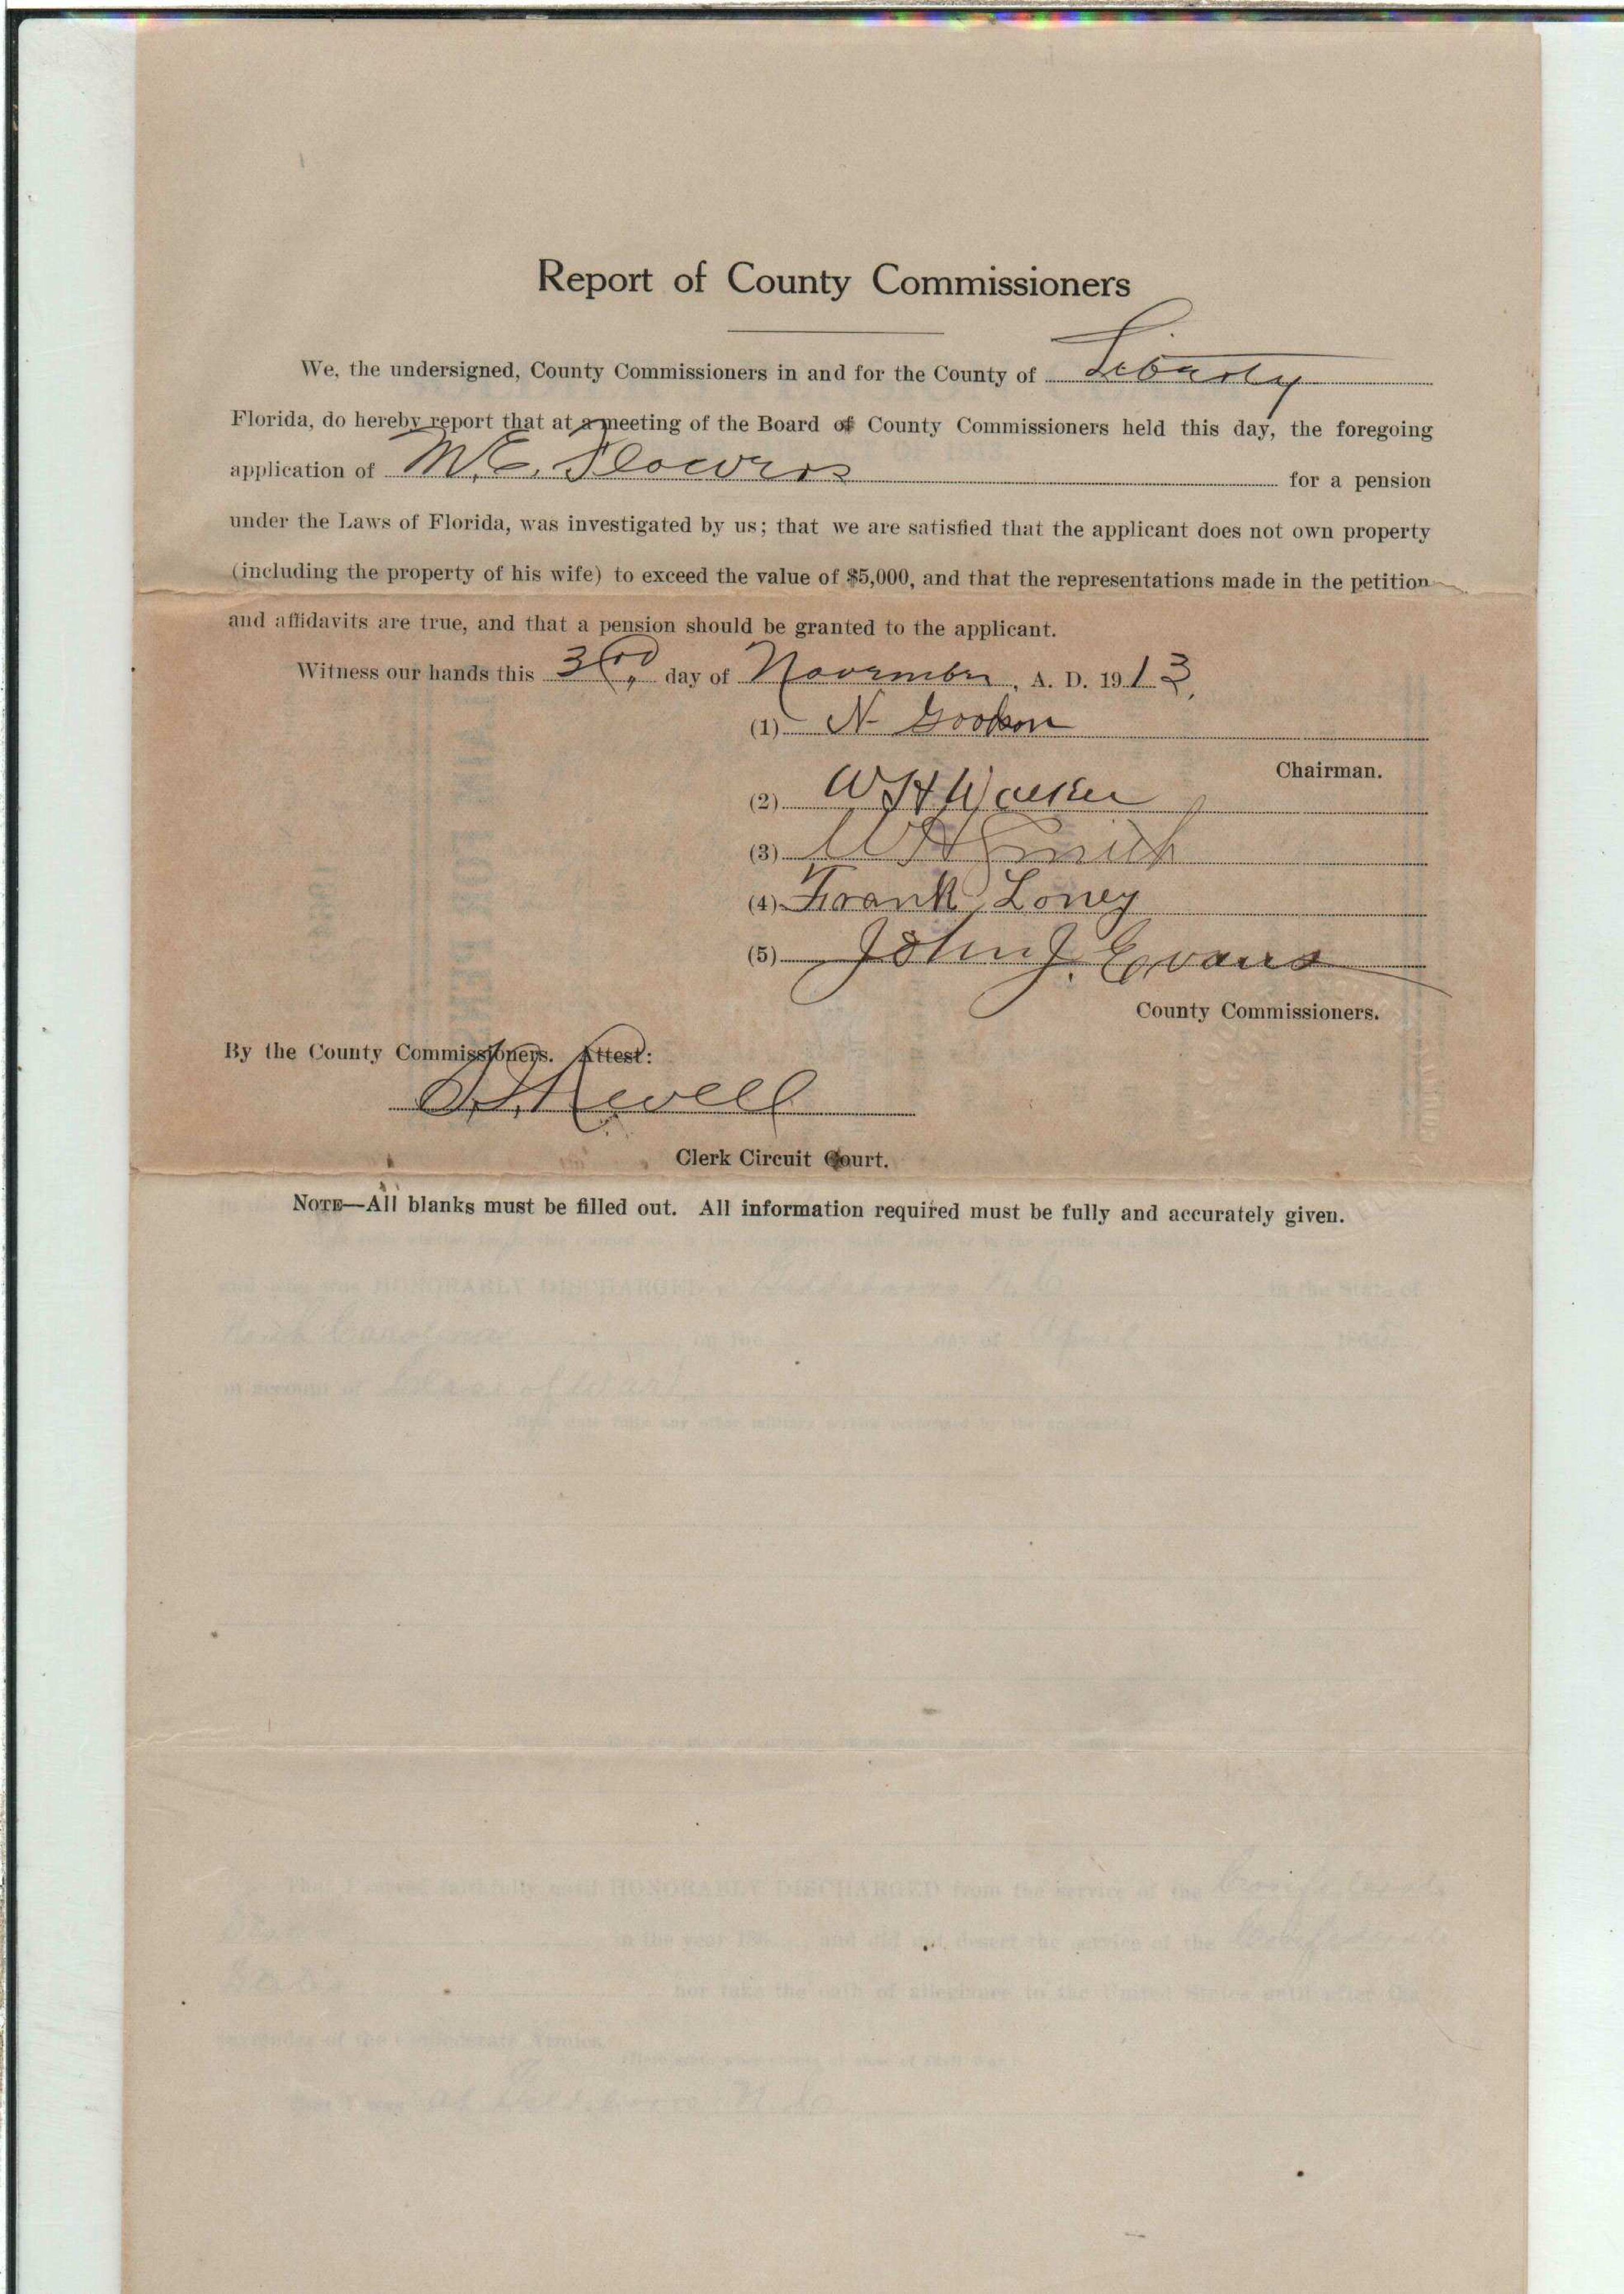 Report of County Commissioners
We, the undersigned, County Commissioners in and for the County of Liberty
Florida, do hereby report that at a meeting of the Board of County Commissioners held this day, the foregoing
application of W. C. Flowers for a pension
under the Laws of Florida, was investigated by us; that we are satisfied that the applicant does not own property
(including the property of his wife) to exceed the value of $5,000, and that the representations made in the petition
and affidavits are true, and that a pension should be granted to the applicant.
Witness our hands this 3rd, day of November, A. D. 1913.
(1) N
Chairman.
(2) W H Walker
(3) W H Smith
(4) Frank Loney
(5) John J. Evans
County Commissioners.
By the County Commissioners. Attest:
Revell
Clerk Circuit Court.
NOTE—All blanks must be filled out. All information required must be fully and accurately given.